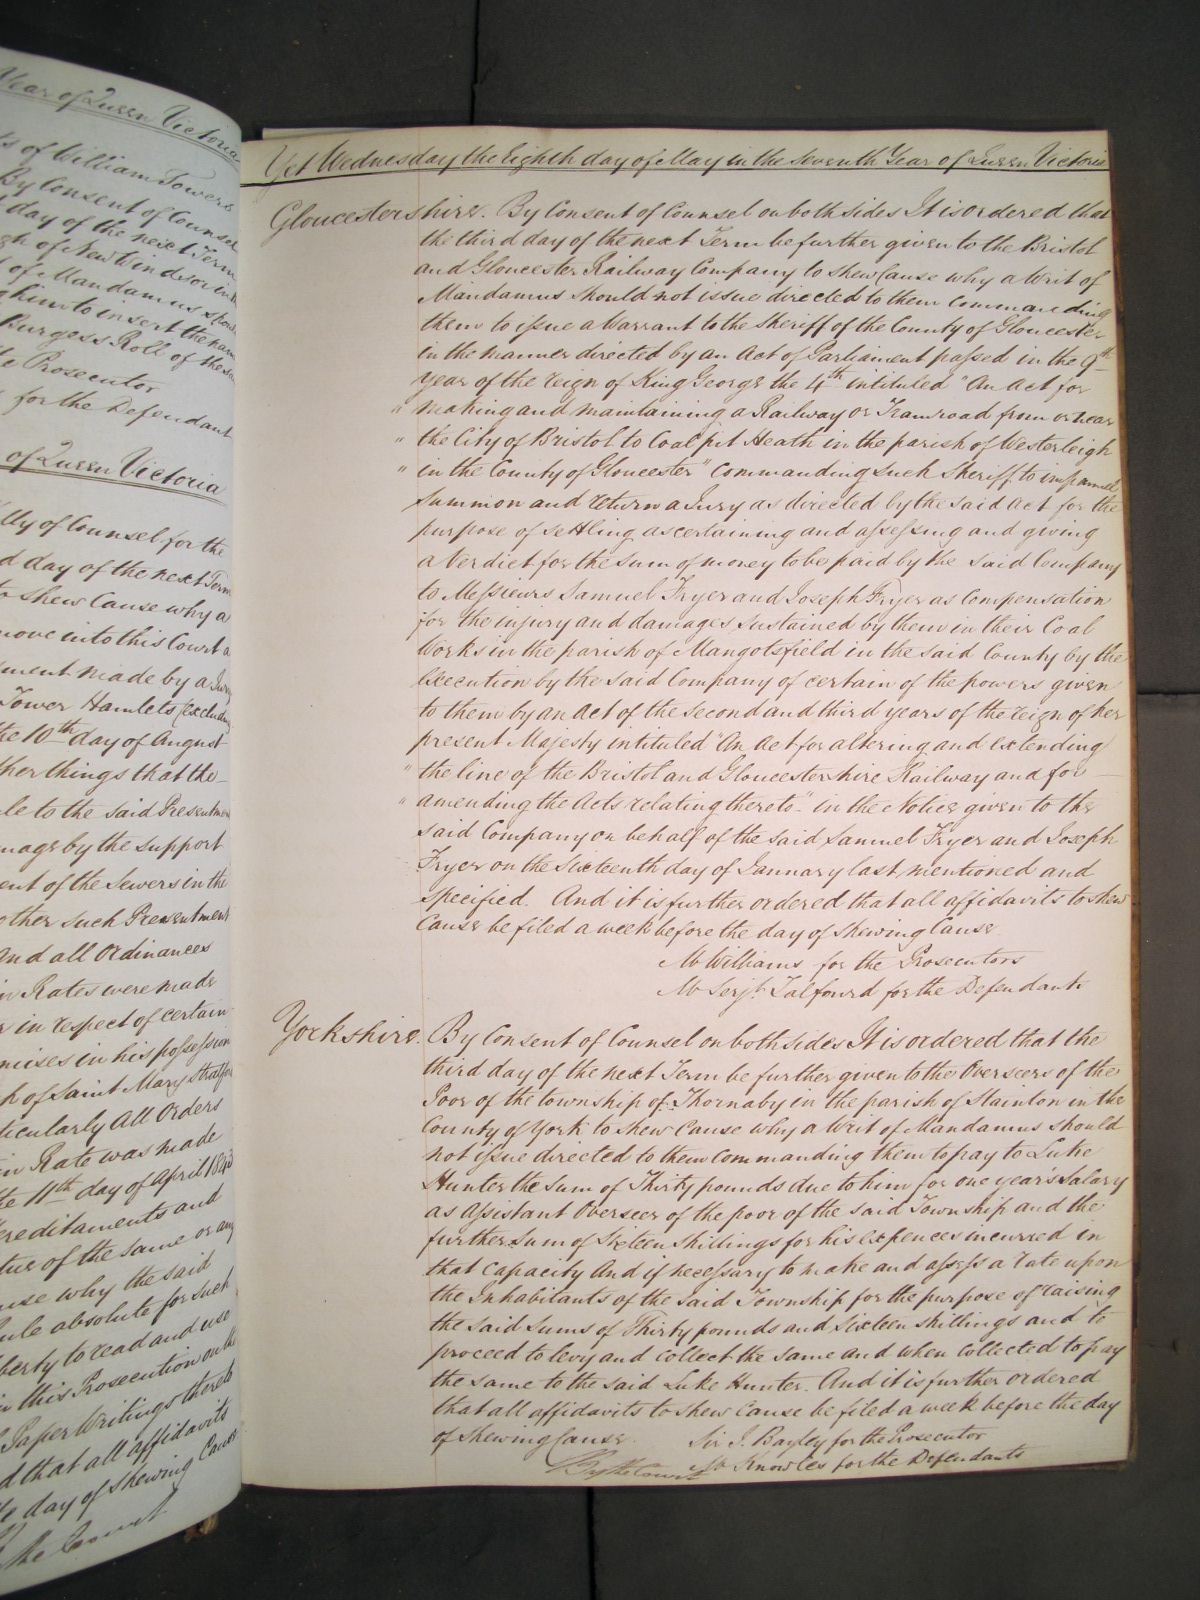 Year of Queen Victoria
s of William Towers
By Consent of Counsel
day of the next Term
gh of New Windsor in
of Mandamus
him to insert the name
Burgess Roll of the
Prosecutor
for the Defendant
of Queen Victoria
lly of Counsel for the
d day of the next Term
to shew Cause why a
move into this Court a
ment made by a Jury
Tower Hamlets
the 10th day of August
ther things that the
le to the said Presentment
mage by the support
ent of the Sewers in the
other such Presentment
and all Ordinances
in Rates were made
r in respect of certain
mises in his possession
h of Saint Mary
ticularly All Orders
in Rate was made
the 11th day of April 1843
ereditaments and
tue of the same or any
use why the said
rule absolute for such
berty to read and use
in this Prosecution on the
Paper Writings thereto
d that all affidavits
the day of shewing Cause
By the Court
Yet Wednesday the Eighth day of May in the Seventh Year of Queen Victoria
Gloucestershire. By Consent of Counsel on both sides It is ordered that
the third day of the next Term be further given to the Bristol
and Gloucester Railway Company to shew Cause why a Writ of
Mandamus should not issue directed to them Commanding
them to issue a Warrant to the Sheriff of the County of Gloucester
in the manner directed by an Act of Parliament passed in the 9th
Year of the reign of King George the 4th intituled "An Act for
" making and maintaining a Railway or Tramroad from or near
" the City of Bristol to Coal pit Heath in the parish of Westerleigh
" in the County of Gloucester" Commanding such Sheriff to impannel
summon and return a Jury as directed by the said Act for the
purpose of settling ascertaining and assessing and giving
a Verdict for the sum of money to be paid by the said Company
to Messieurs Samuel Fryer and Joseph Fryer as Compensation
for the injury and damages sustained by them in their Coal
Works in the parish of Mangotsfield in the said County by the
Execution by the said Company of certain of the powers given
to them by an Act of the second and third years of the reign of her
present Majesty intituled "An Act for altering and extending
" the line of the Bristol and Gloucestershire Railway and for
" amending the Acts relating thereto." in the Notice given to the
said Company on behalf of the said Samuel Fryer and Joseph
Fryer on the Sixteenth day of January last mentioned and
specified. And it is further ordered that all affidavits to shew
Cause be filed a week before the day of shewing Cause.
Mr Williams for the Prosecutors
Mr Serjt. Talfourd for the Defendants
Yorkshire. By Consent of Counsel on both sides It is ordered that the
third day of the next Term be further given to the Overseers of the
Poor of the township of Thornaby in the parish of Stainton in the
County of York to shew Cause why a Writ of Mandamus should
not issue directed to them Commanding them to pay to Luke
Hunter the sum of Thirty pounds due to him for one year's Salary
as assistant Overseer of the poor of the said Township and the
further sum of Sixteen shillings for his expences incurred in
that Capacity And if necessary to make and assess a rate upon
the Inhabitants of the said Township for the purpose of raising
the said sums of Thirty pounds and sixteen shillings and to
proceed to levy and Collect the same and when Collected to pay
the same to the said Luke Hunter. And it is further ordered
that all affidavits to shew Cause be filed a week before the day
of shewing Cause. Sir J. Bayley for the Prosecutor
By the Court Mr Knowles for the Defendants